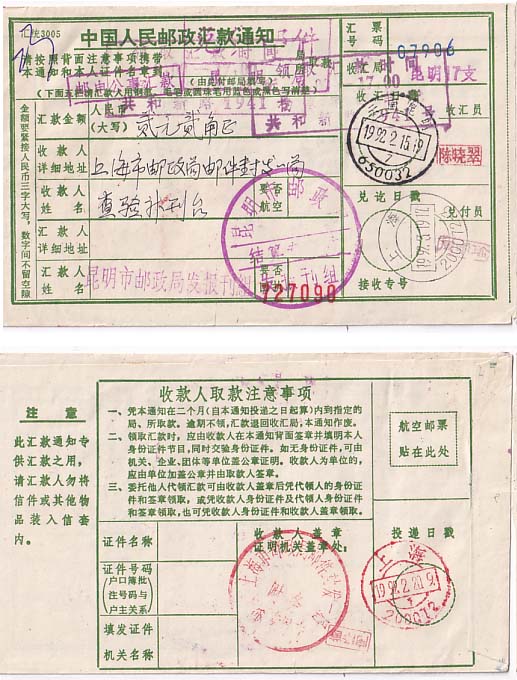 汇统3005
中国人民邮政汇款通知
请按照背面注意事项携带
本通知和本人证件名章到
局
所取款
(由兑付邮局填写)
共和新路1941
共和
汇票
号码
07906
收汇局
昆明17支
收汇员
陈晓翠
1992.2.15.19
7
650032
金额要紧接人民币三字大写,数字间不留空隙
汇款金额
人民币
(大写)
贰元贰角正
收款人
详细地址
上海市邮政局邮件封发一局
收款人
姓名
查验补刊台
要否
航空
汇款人
详细地址
汇款人
姓名
昆明市邮政局发报刊组
要否
727090
昆明市邮政
兑讫日戳
兑付员
上海
200072
接收专号
注意
此汇款通知专
供汇款之用,
请汇款人勿将
信件或其他物
品装入信套
内。
收款人取款注意事项
一、凭本通知在二个月(自本通知投递之日起算)内到指定的
局、所取款。逾期不领,汇款退回收汇局,本通知作废。
二、领取汇款时,应由收款人在本通知背面签章并填明本人
身份证件节目,同时交验身份证件。如无身份证件,可由
机关、企业、团体等单位盖公章证明。收款人为单位的,
应由单位加盖公章并由取款人签章。
三、委托他人代领汇款可由收款人盖章后凭代领人的身份证
件和签章领取,或凭收款人身份证件及代领人的身份证
件和签章领取,也可凭收款人身份证件和收款人盖章领取。
航空邮票
贴在此处
证件名称
收款人盖章
证明机关盖章处:
投递日戳
证件号码
(户口簿批
注号码与
户主关系)
填发证件
机关名称
上海
1992.2.21.9
200072